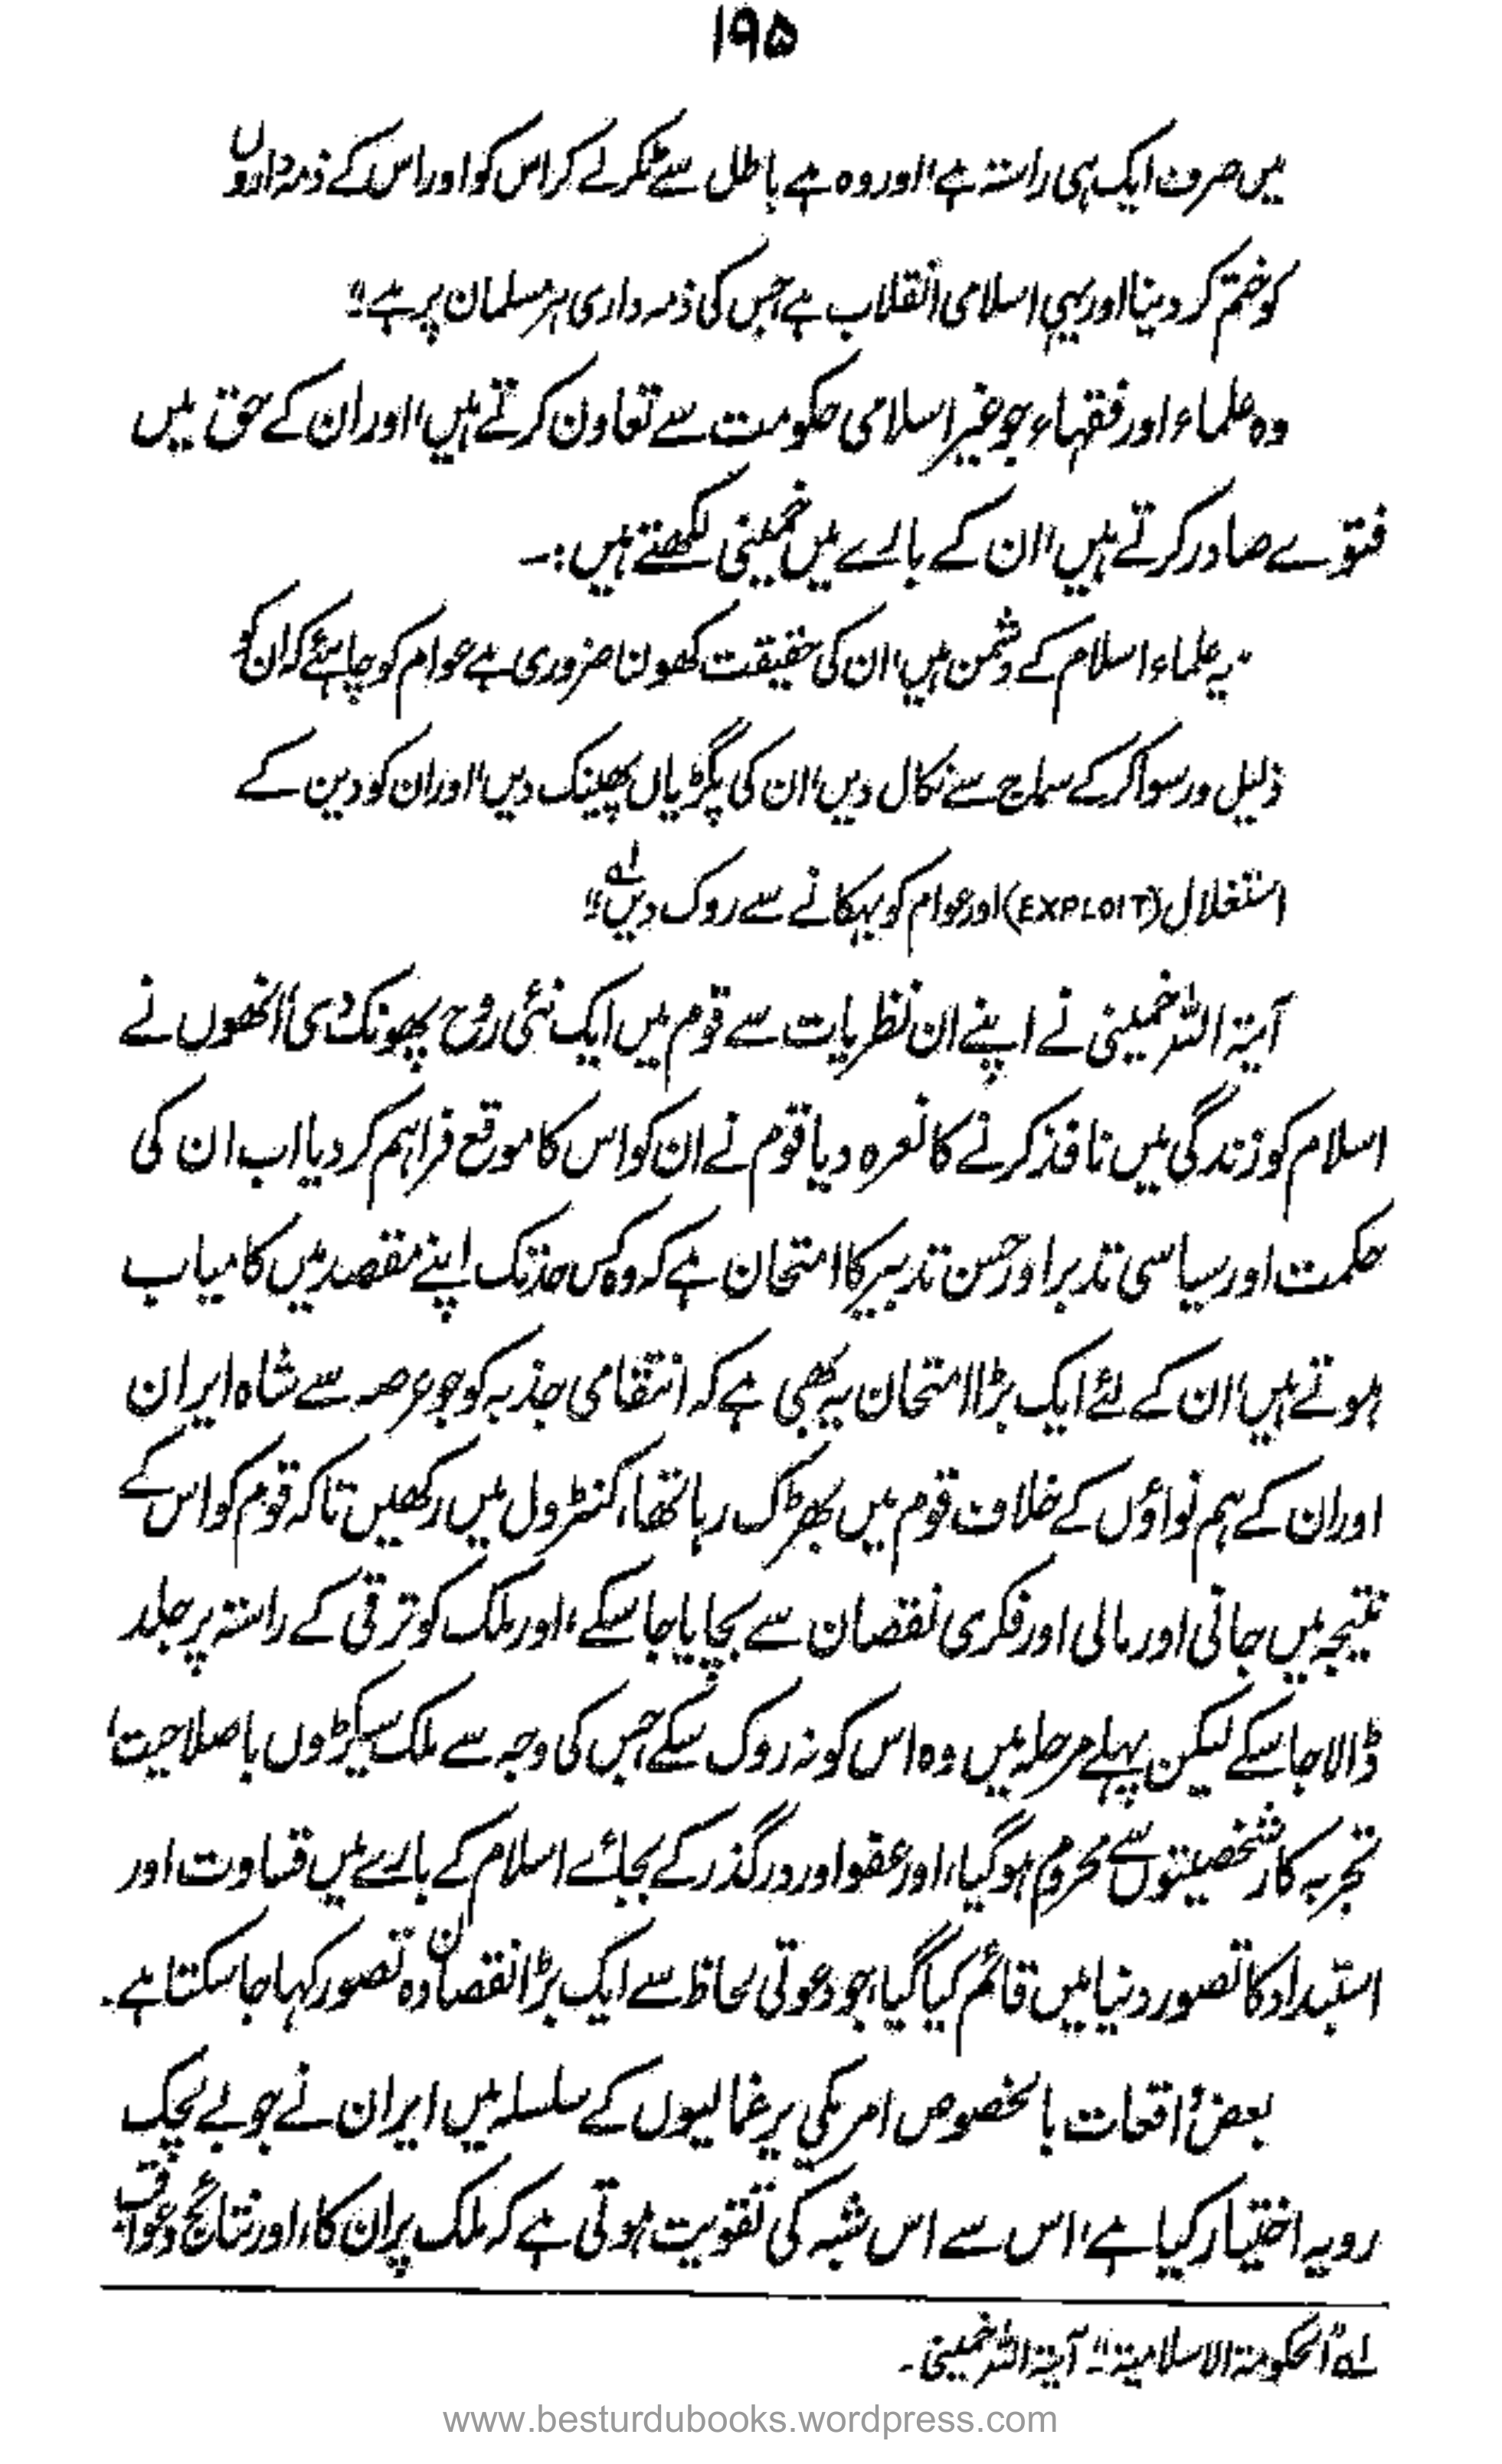 ۱۹۵
میں صرف ایک ہی راستہ ہے، اور وہ ہے باطل سے ٹکر لے کر اس کو اور اس کے ذمہ داروں
کو ختم کر دینا اور یہی اسلامی انقلاب ہے جس کی ذمہ داری ہر مسلمان پر ہے"
وہ علماء اور فقہاء جو غیر اسلامی حکومت سے تعاون کرتے ہیں، اور ان کے حق میں
فتوے صادر کرتے ہیں، ان کے بارے میں خمینی لکھتے ہیں:۔
یہ علماء اسلام کے دشمن ہیں، ان کی حقیقت کھونا ضروری ہے عوام کو چاہئے کہ ان کو
ذلیل و رسوا کر کے سماج سے نکال دیں، ان کی پگڑیاں پھینک دیں، اور ان کو دین کے
استغلال (EXPLOIT) اور عوام کو بہکانے سے روک دیں" لہ
آیۃ اللہ خمینی نے اپنے ان نظریات سے قوم میں ایک نئی روح پھونک دی، انھوں نے
اسلام کو زندگی میں نافذ کرنے کا نعرہ دیا قوم نے ان کو اس کا موقع فراہم کر دیا، اب ان کی
حکمت اور سیاسی تدبر اور حسن تدبیر کا امتحان ہے کہ وہ کس حد تک اپنے مقصد میں کامیاب
ہوتے ہیں، ان کے لئے ایک بڑا امتحان یہ بھی ہے کہ انتقامی جذبہ کو جو عرصہ سے شاہ ایران
اور ان کے ہم نواؤں کے خلاف قوم میں بھڑک رہا تھا، کنٹرول میں رکھیں تاکہ قوم کو اس کے
نتیجہ میں جانی اور مالی اور فکری نقصان سے بچایا جا سکے، اور ملک کو ترقی کے راستہ پر جلد
ڈالا جا سکے لیکن پہلے مرحلہ میں وہ اس کو نہ روک سکے، جس کی وجہ سے ملک سیکڑوں باصلاحیت،
تجربہ کار شخصیتوں سے محروم ہو گیا، اور عفو اور درگذر کے بجائے اسلام کے بارے میں قساوت اور
استبداد کا تصور دنیا میں قائم کیا گیا، جو دعوتی لحاظ سے ایک بڑا نقصان دہ تصور کہا جا سکتا ہے۔
بعض واقعات بالخصوص امریکی یرغمالیوں کے سلسلہ میں ایران نے جو بے لچک
رویہ اختیار کیا ہے، اس سے اس شبہ کی تقویت ہوتی ہے کہ ملک پر ان کا، اور نتائج و عواقب
لہ "الحکومۃ الاسلامیۃ" ۔ آیۃ اللہ خمینی۔
www.besturdubooks.wordpress.com